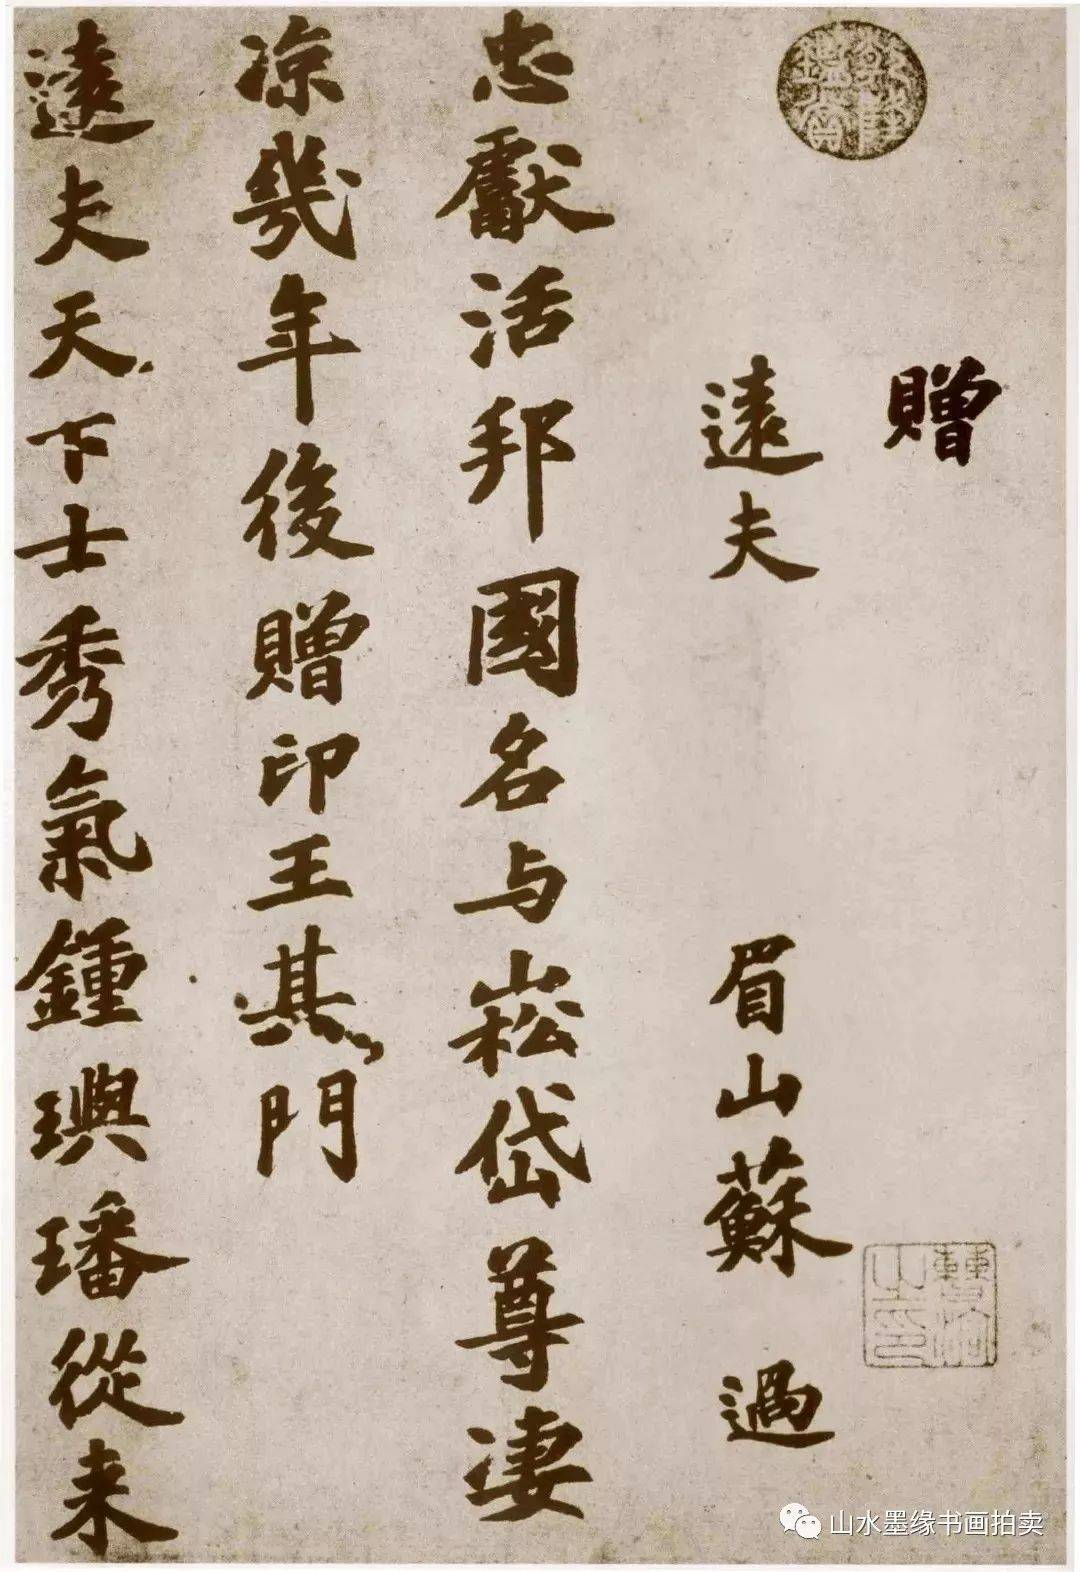 贈
遠夫
眉山蘇 過
忠獻活邦國名与崧岱尊淒
凉幾年後贈印王其門
遠夫天下士秀氣鍾璵璠從来
山水墨缘书画拍卖